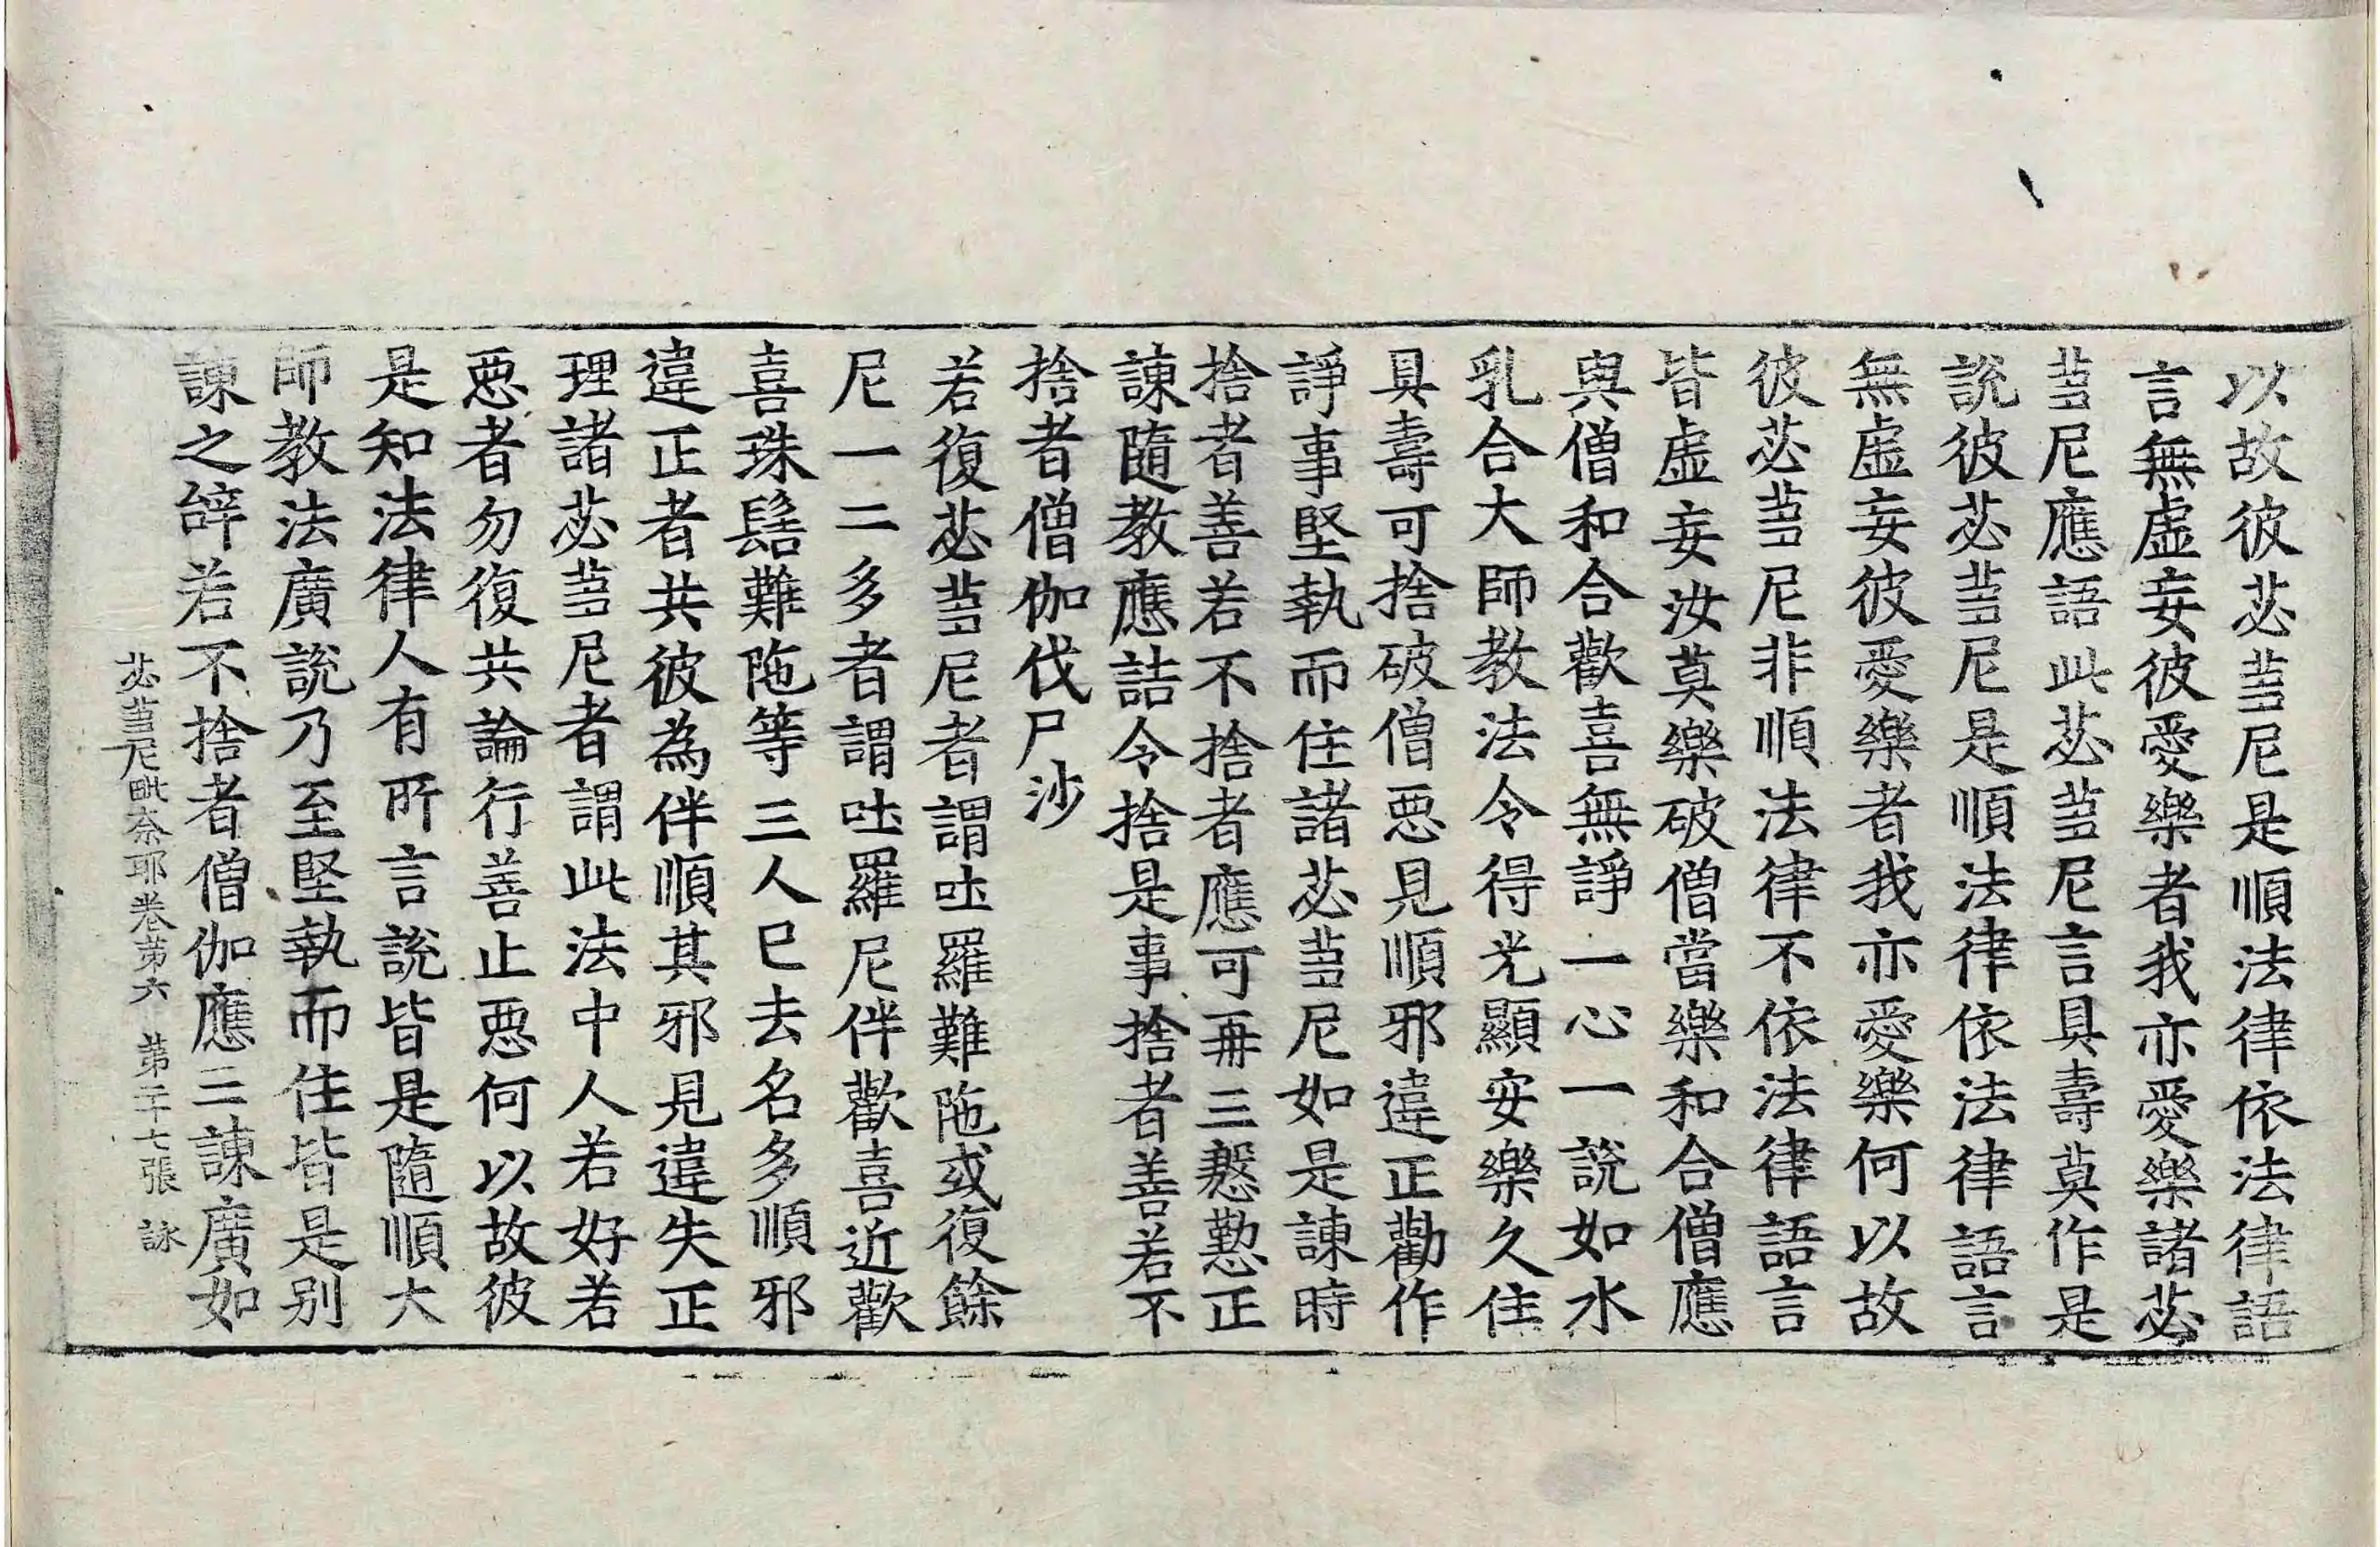 以故彼苾芻尼是順法律依法律語
言無虛妄彼愛樂者我亦愛樂諸苾
芻尼應語此苾芻尼言具壽莫作是
說彼苾芻尼是順法律依法律語言
無虛妄彼愛樂者我亦愛樂何以故
彼苾芻尼非順法律不依法律語言
皆虛妄汝莫樂破僧當樂和合僧應
與僧和合歡喜無諍一心一說如水
乳合大師教法令得光顯安樂久住
具壽可捨破僧惡見順邪違正勸作
諍事堅執而住諸苾芻尼如是諫時
捨者善若不捨者應可再三慇懃正
諫隨教應詰令捨是事捨者善若不
捨者僧伽伐尸沙
若復苾芻尼者謂吐羅難陁或復餘
尼一二多者謂吐羅尼伴歡喜近歡
喜珠髻難陁等三人已去名多順邪
違正者共彼為伴順其邪見違失正
理諸苾芻尼者謂此法中人若好若
惡者勿復共論行善止惡何以故彼
是知法律人有所言說皆是隨順大
師教法廣說乃至堅執而住皆是別
諫之辝若不捨者僧伽應三諫廣如
苾芻尼毗奈耶卷第六 第二十七張 詠